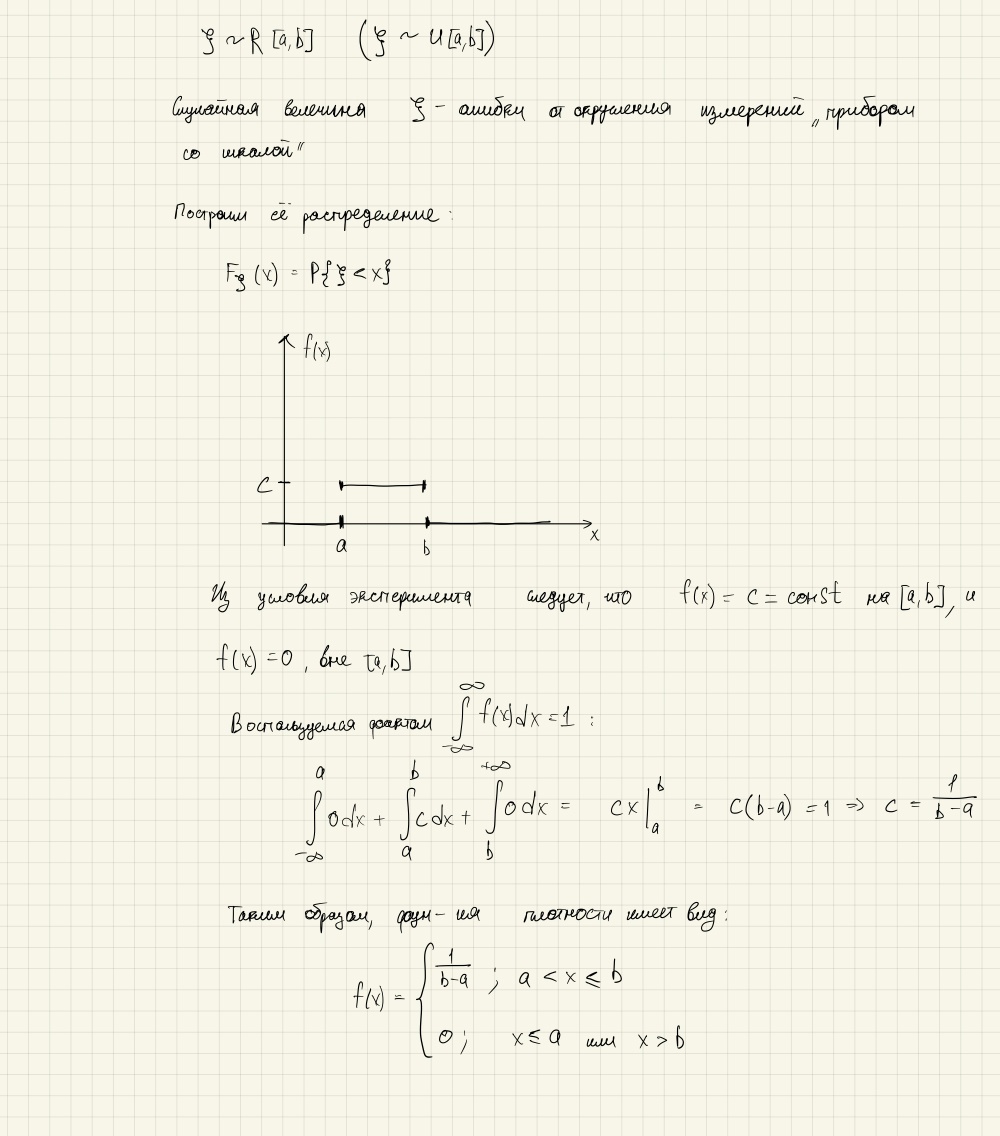 ξ ~ R [a,b] (ξ ~ U[a,b])
Случайная величина ξ - ошибки от округления измерений „прибором
со шкалой"
Построим её распределение:
Fξ(x) = P{ξ < x}
f(x)
C
a b x
Из условия эксперимента следует, что f(x) = C = const на [a,b], и
f(x) = 0, вне [a,b]
Воспользуемся фактом ∫_{-∞}^{∞} f(x)dx = 1 :
∫_{-∞}^{a} 0dx + ∫_{a}^{b} cdx + ∫_{b}^{+∞} 0dx = cx|_{a}^{b} = C(b-a) = 1 ⇒ c = 1/(b-a)
Таким образом, фун-ия плотности имеет вид:
f(x) = { 1/(b-a) ; a < x ⩽ b
0 ; x ≤ a или x > b